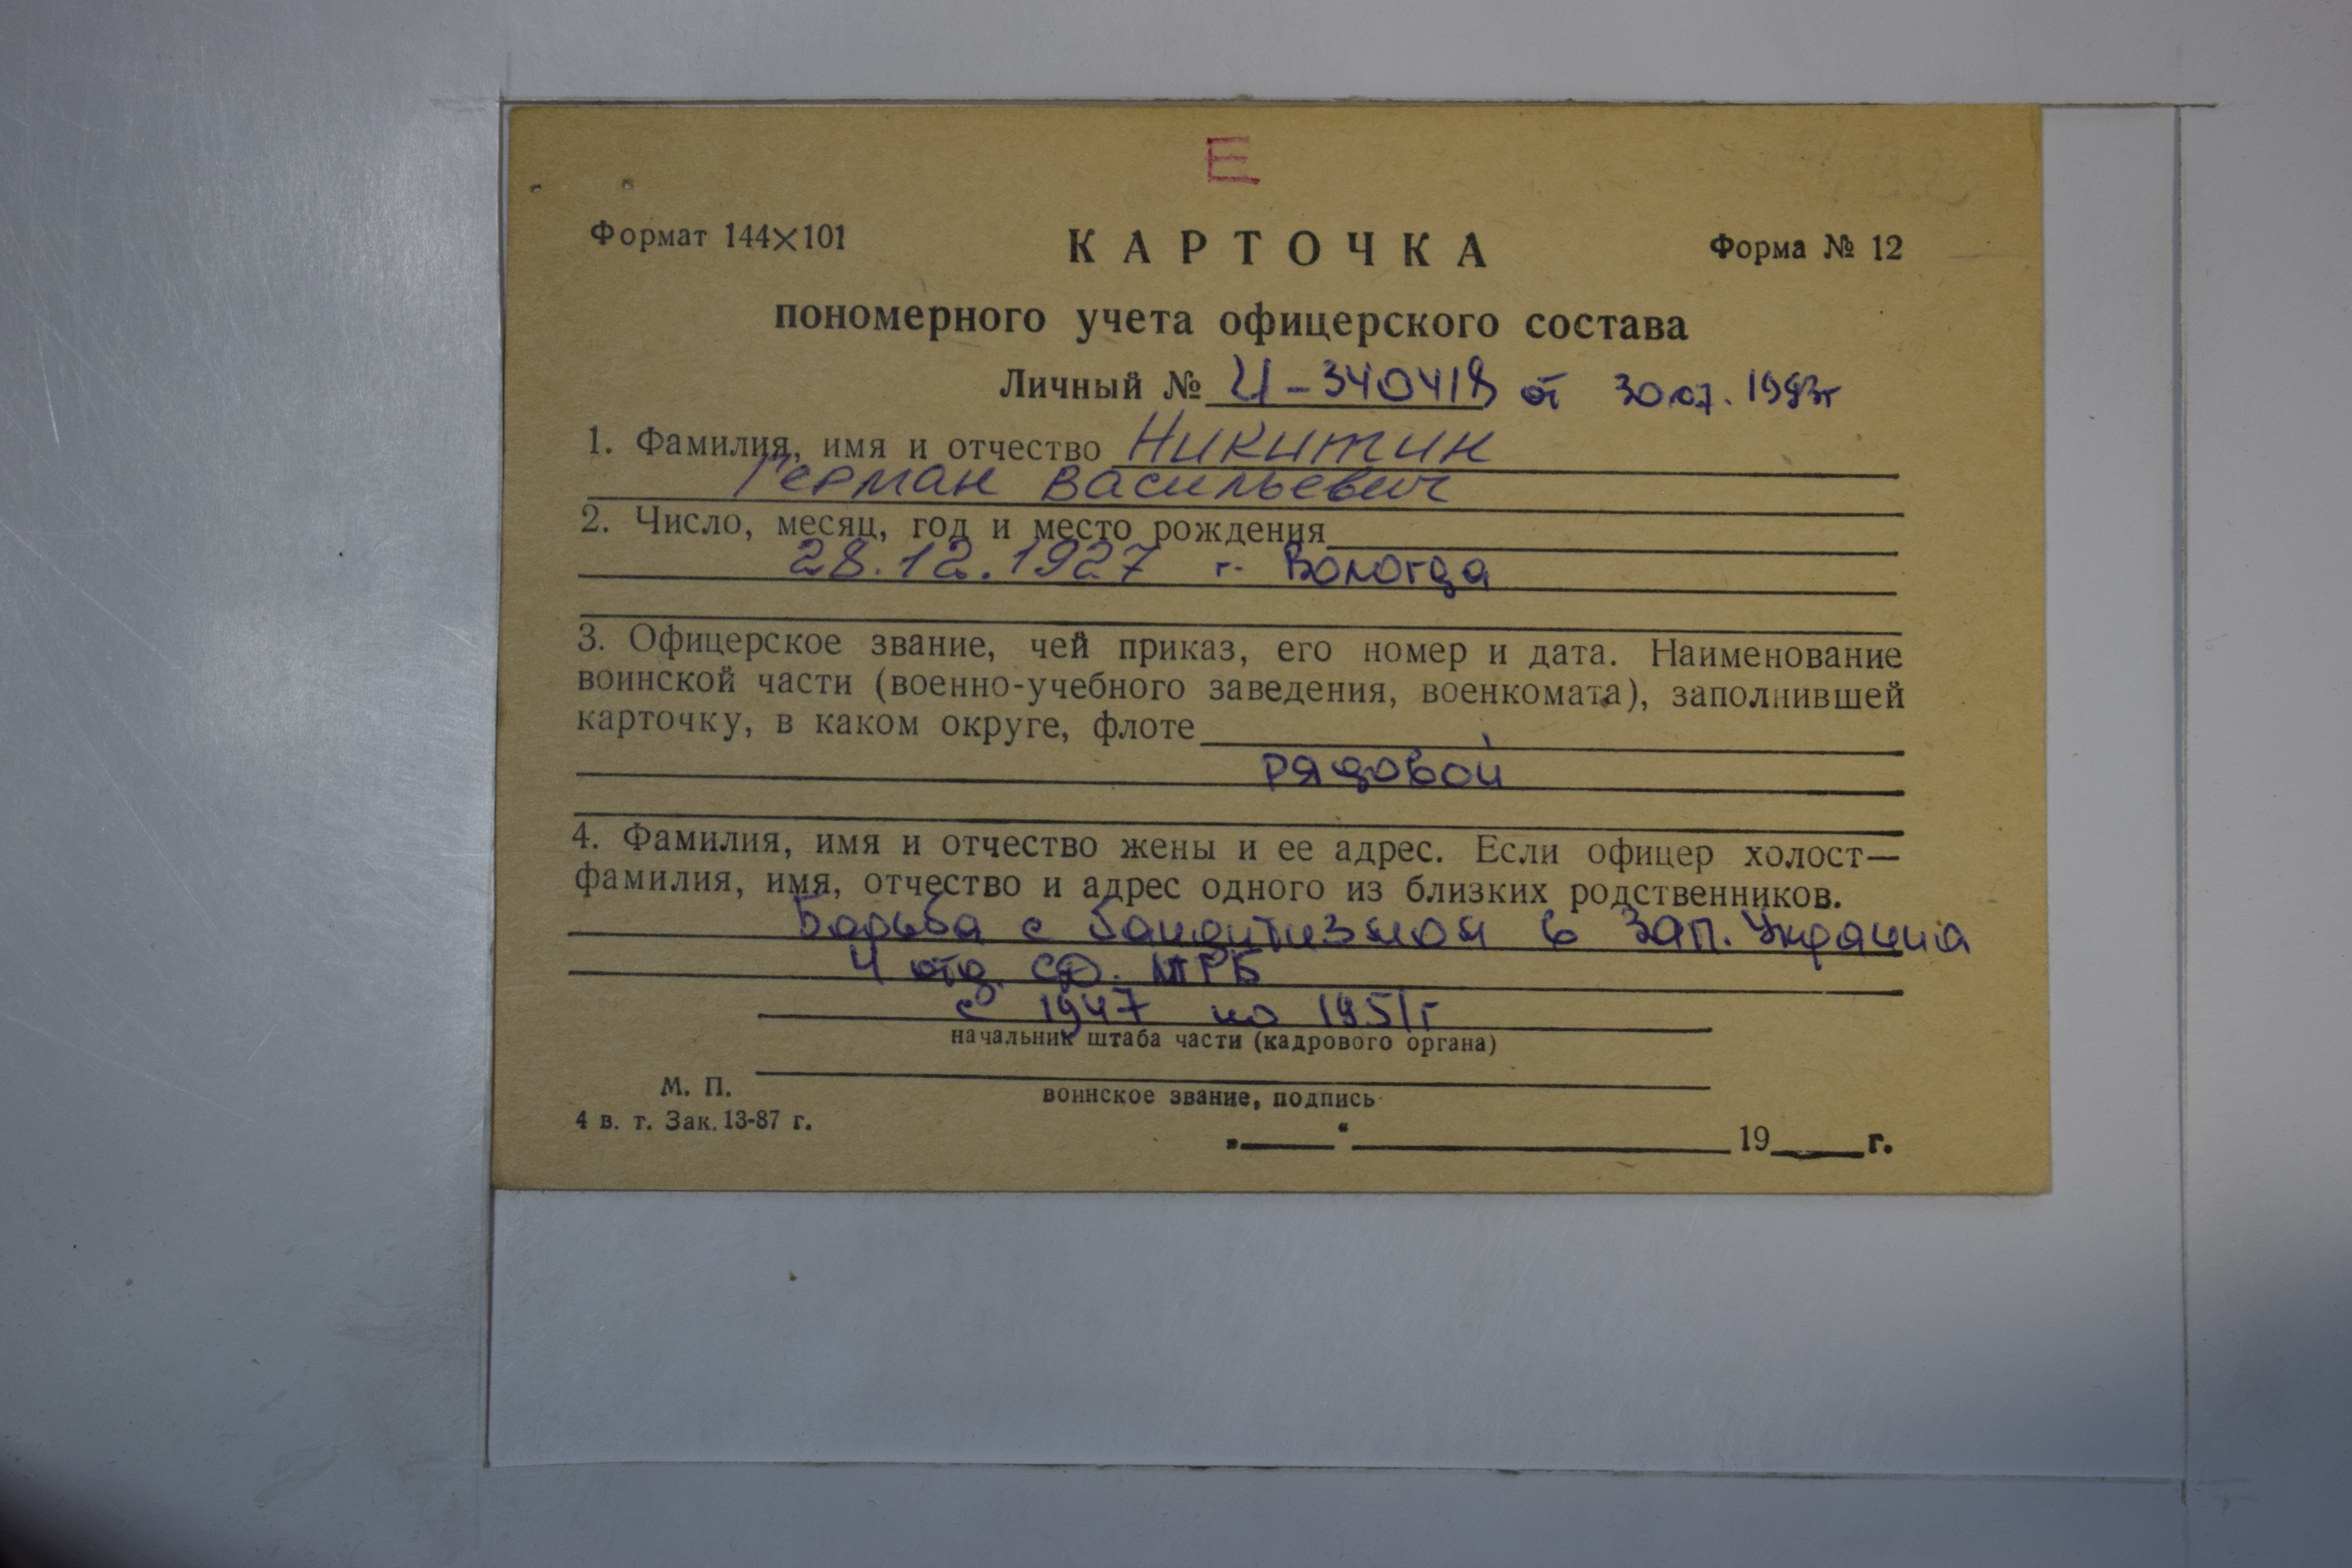 Е
Формат 144×101 КАРТОЧКА Форма № 12
пономерного учета офицерского состава
Личный № И-340418 от 30.07.1993г
1. Фамилия, имя и отчество Никитин
Герман Васильевич
2. Число, месяц, год и место рождения
28.12.1927 г. Вологда
3. Офицерское звание, чей приказ, его номер и дата. Наименование
воинской части (военно-учебного заведения, военкомата), заполнившей
карточку, в каком округе, флоте
рядовой
4. Фамилия, имя и отчество жены и ее адрес. Если офицер холост—
фамилия, имя, отчество и адрес одного из близких родственников.
Борьба с бандитизмом в Зап. Украина
4 отд. МРБ
с 1947 по 1951г
начальник штаба части (кадрового органа)
М. П.
воинское звание, подпись
4 в. т. Зак. 13-87 г.
„ “ 19 г.